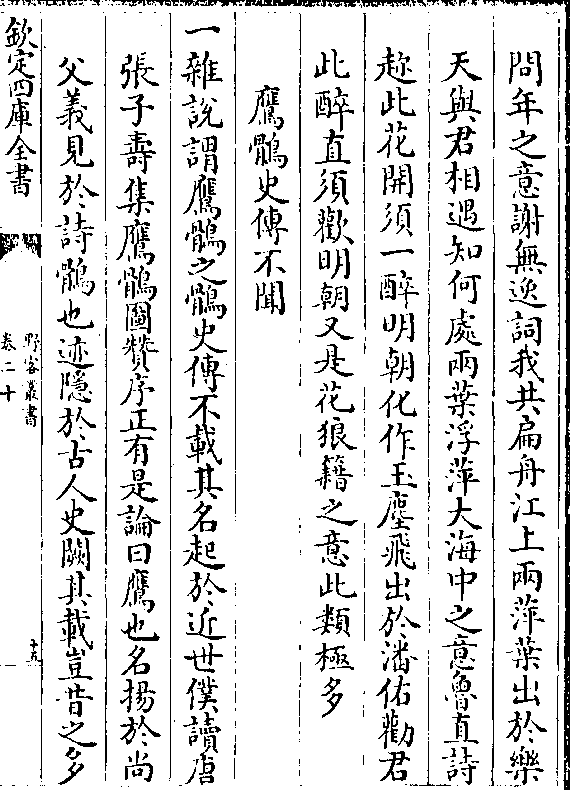 問年之意謝無逸詞我共扁舟江上兩萍葉出於樂
天與君相遇知何處兩葉浮萍大海中之意魯直詩
趂此花開須一醉明朝化作玉塵飛出於潘佑勸君
此醉直須歡明朝又是花狼籍之意此類極多
鷹鶻史傳不聞
一雜說謂鷹鶻之鶻史傳不載其名起於近世僕讀唐
張子壽集鷹鶻圖贊序正有是論曰鷹也名揚於尚
父義見於詩鶻也迹隱於古人史闕其載豈昔之多
欽定四庫全書
野客叢書
卷二十
十五